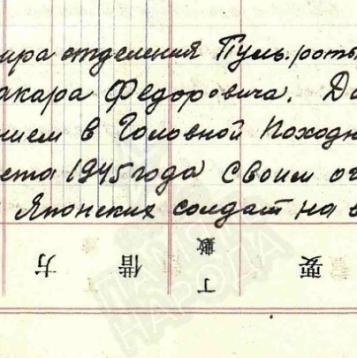 ира отделения Пуль.роты
акара Федоровича. Да
нием в Головной Походн
ста 1945 года своим ог
Японских солдат на в
方 借 丁數 要